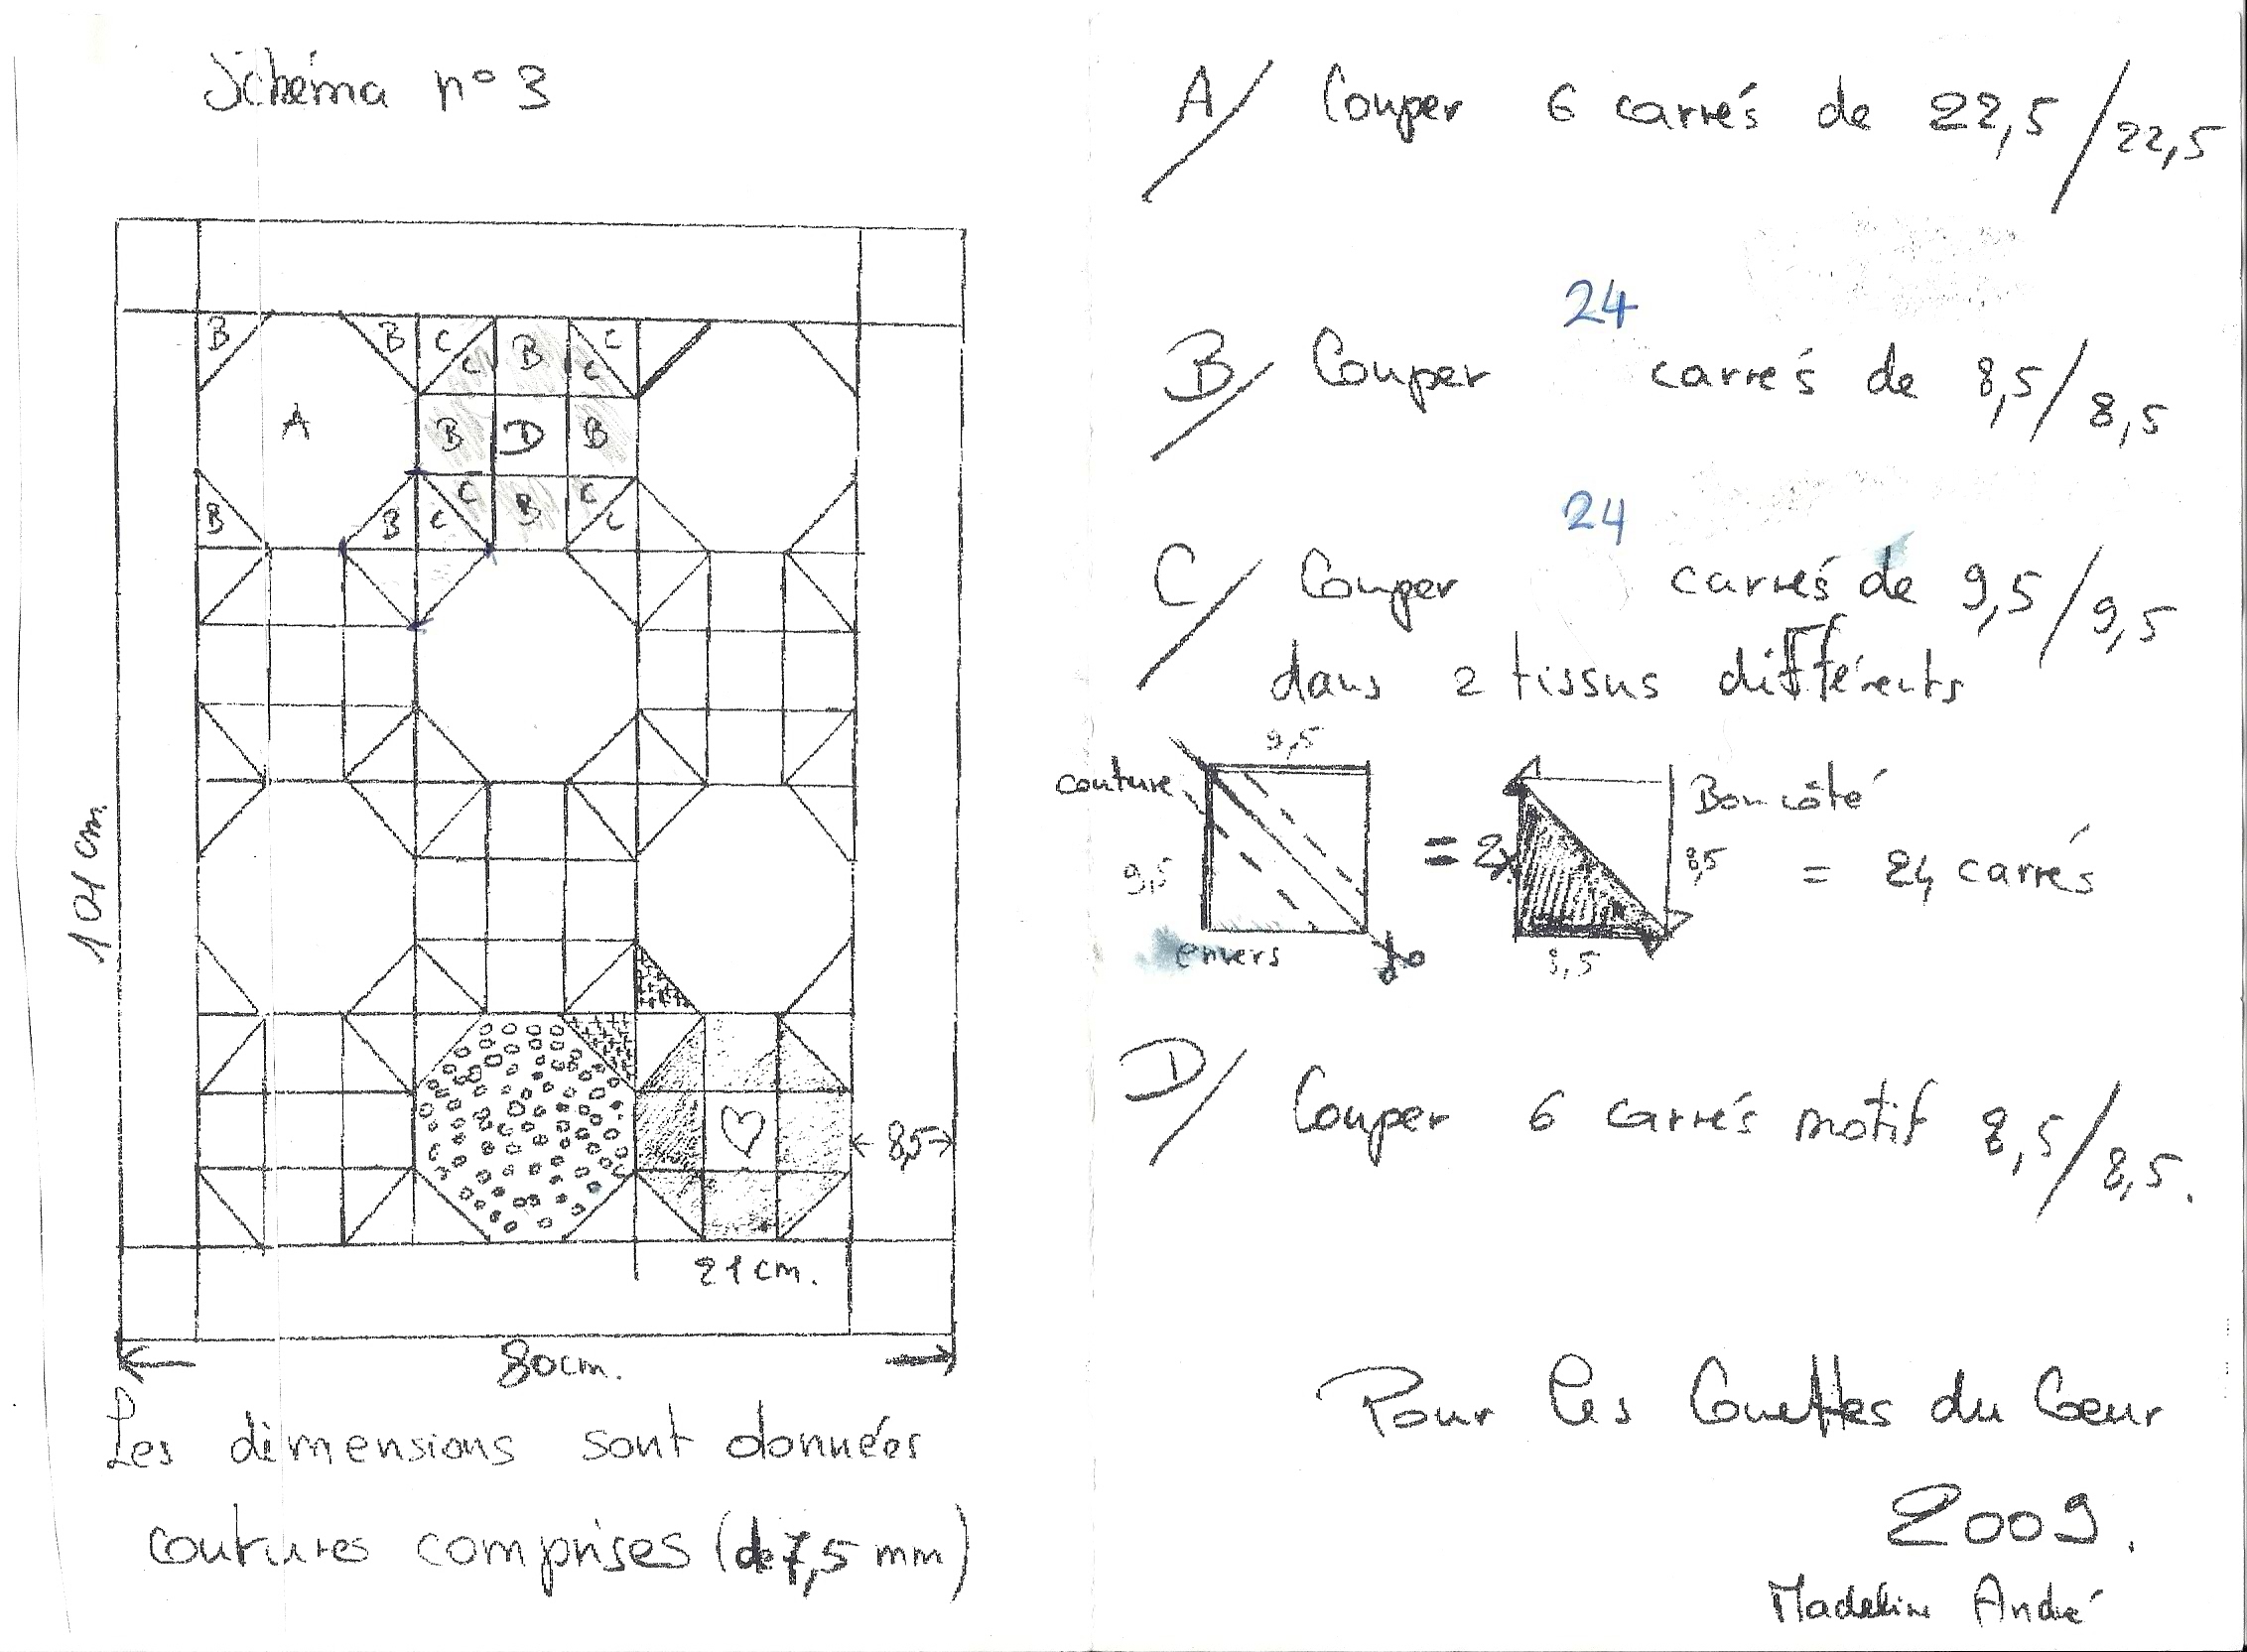 Schéma n° 3
B B C C B C C
A B D B
B B C C B C C
101 cm.
8,5
21 cm.
80 cm.
Les dimensions sont données
coutures comprises (de 7,5 mm)
A/ Couper 6 carrés de 22,5/22,5
24
B/ Couper carrés de 8,5/8,5
24
C/ Couper carrés de 9,5/9,5
dans 2 tissus différents
9,5
couture
9,5
envers
= 2x
Bon côté
8,5
8,5
= 24 carrés
D/ Couper 6 carrés motif 8,5/8,5.
Pour les Couettes du Coeur
2009.
Madeline André